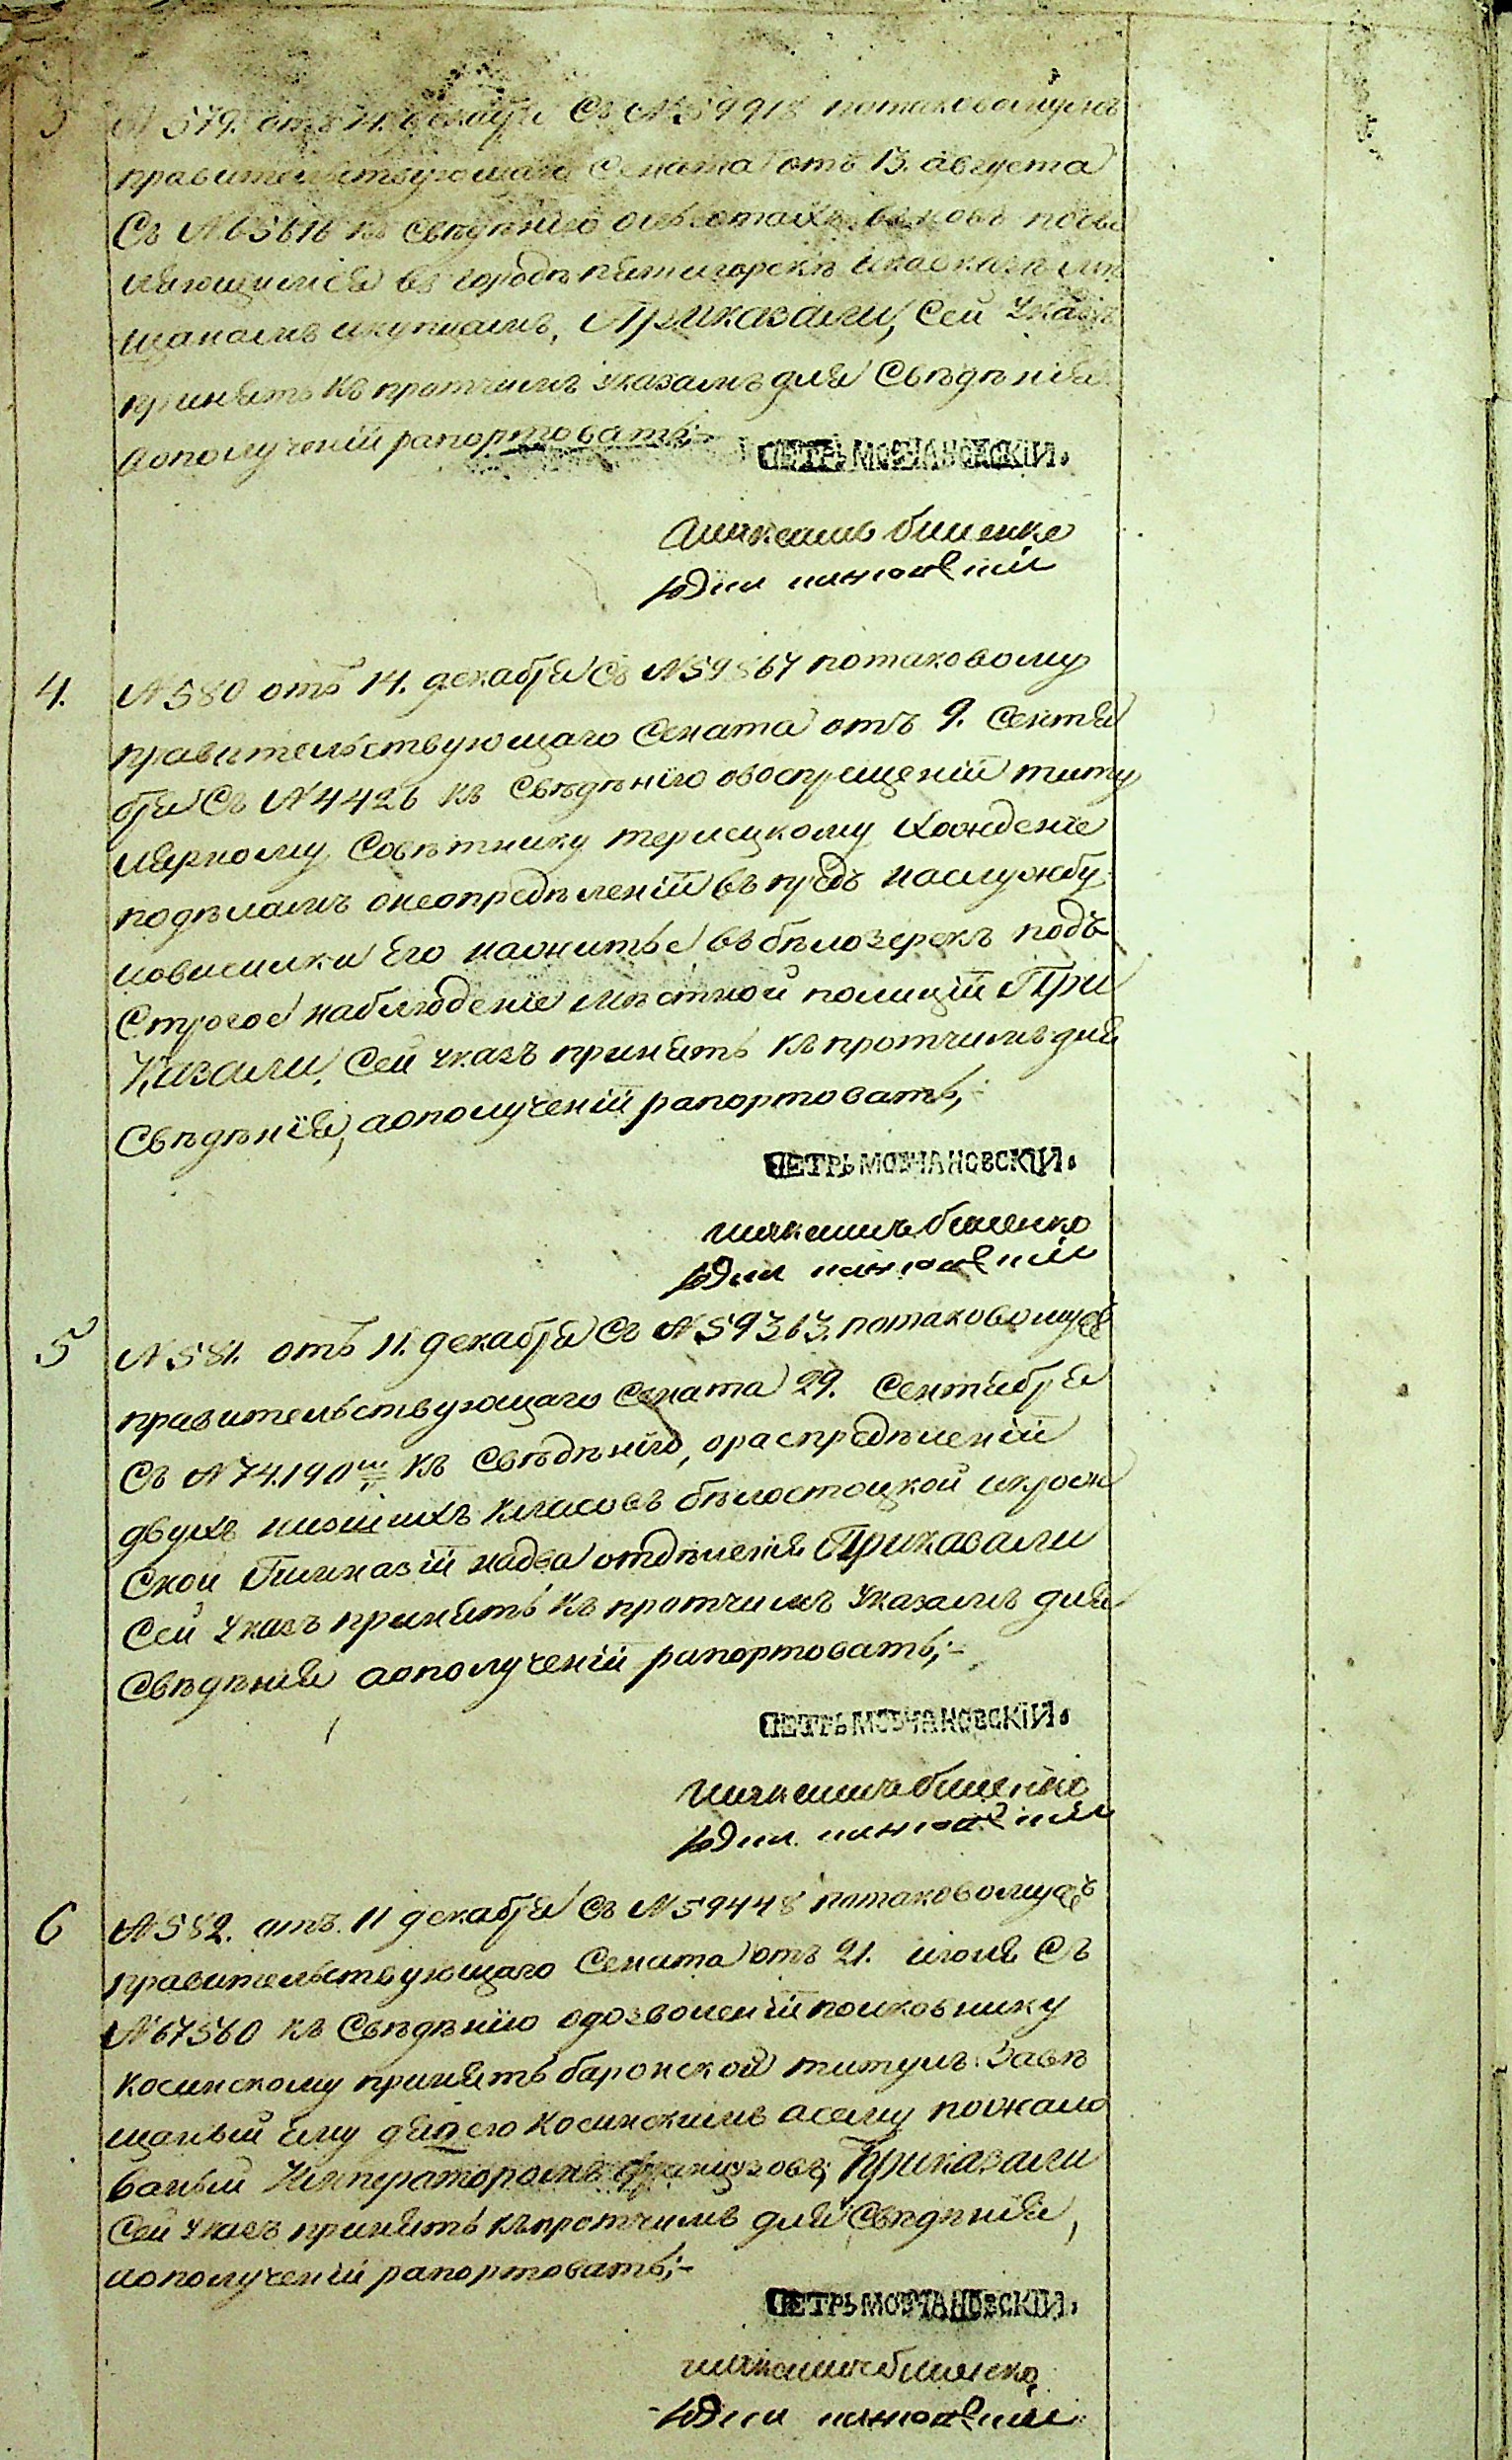 3
N 579. отъ 14. декабря Съ N 59918 потаковомужъ
правительствующаго Сената отъ 13. августа
Съ N 65616 къ свѣдѣнію
въ городѣ пятигорскѣ
щаномъ икупцамъ, Приказали, Сей Указъ
принять къ протчимъ указамъ для Свѣдѣнія
аополученій рапортовать;-
ПЕТРЪ МОВЧАНОВСКІЙ.
4.
N 580 отъ 14. декабря Съ N 59867 потаковому
правительствующаго Сената отъ 9. Сентя
бря Съ N 4426 къ Свѣдѣнію овоспрещеній титу
лярному Совѣтнику терлецкому Хожденіе
подѣламъ онеопредѣленій въ предъ наслужбу
иовысылки Его нажитье въ бѣлозерскъ подъ
Строгое наблюденіе мѣстной полицій При
Казали, Сей указъ принять къ протчимъ для
Свѣдѣнія, аополученій рапортовать;-
ПЕТРЪ МОВЧАНОВСКІЙ.
5
N 581. отъ 11. декабря Съ N 59363. потаковому жъ
правительствующаго Сената 29. Сентября
Съ N 74.190мъ къ Свѣдѣнію, ораспредѣленій
двухъ низшихъ класовъ бѣлостоцкой икрож
Ской Гимназій надва отдѣленія Приказали
Сей Указъ принять къ протчимъ Указамъ для
Свѣдѣнія аополученій рапортовать;-
ПЕТРЪ МОВЧАНОВСКІЙ.
6
N 582. отъ 11 декабря Съ N 59448 потаковому жъ
правительствующаго Сената отъ 21. июля Съ
N 67560 къ Свѣдѣнію одозволеній полковнику
косинскому принять баронской титулъ Завѣ
щаный Ему дядею Косинскимъ асему пожало
ваный Императоромъ французовъ; Приказали
Сей Указъ принять къ протчимъ для Свѣдѣнія,
иополученій рапортовать;-
ПЕТРЪ МОВЧАНОВСКІЙ.